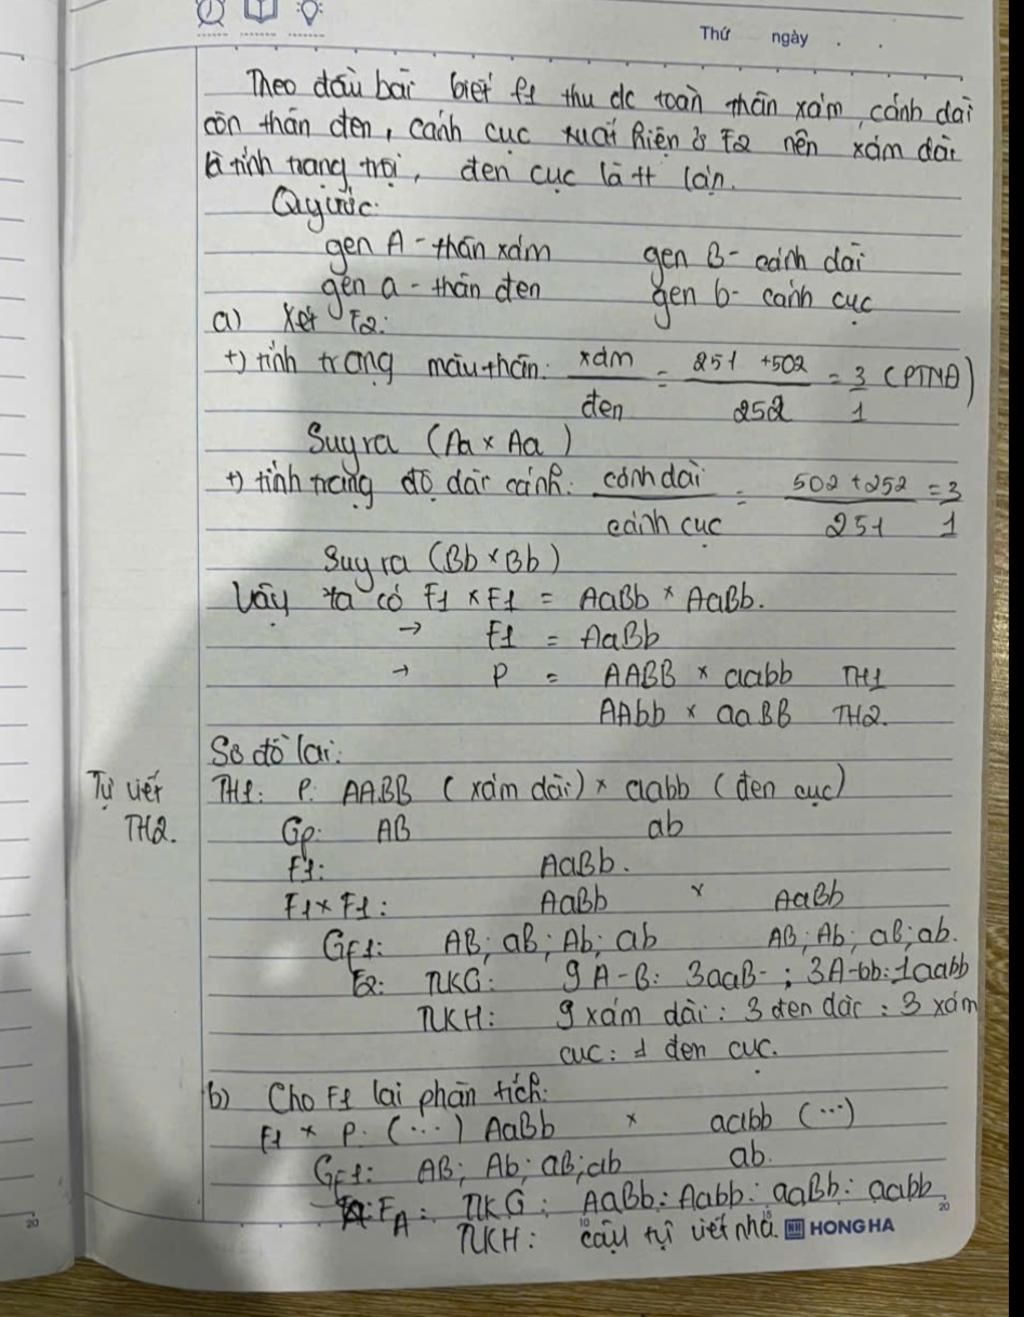 Thứ ngày
Theo đầu bài biết F1 thu đc toàn thân xám, cánh dài
còn thân đen, cánh cục xuất hiện ở F2 nên xám dài
là tính trạng trội, đen cục là tt lặn.
Quy ước:
gen A - thân xám gen B - cánh dài
gen a - thân đen gen b - cánh cục
a) Xét F2:
+) tính trạng màu thân: xám/đen = 251 +502/252 = 3/1 (PTNĐ)
Suy ra (Aa × Aa)
+) tính trạng độ dài cánh: cánh dài/cánh cục = 502 +252/251 = 3/1
Suy ra (Bb × Bb)
Vậy ta có F1 × F1 = AaBb × AaBb.
→ F1 = AaBb
→ P = AABB × aabb TH1
AAbb × aaBB TH2.
Sơ đồ lai:
Tự viết TH1: P: AABB (xám dài) × aabb (đen cục)
TH2. Gp: AB ab
F1: AaBb.
F1 × F1: AaBb × AaBb
GF1: AB; aB; Ab; ab AB; Ab; aB; ab.
F2: TLKG: 9 A-B: 3aaB- ; 3A-bb: 1aabb
TLKH: 9 xám dài : 3 đen dài : 3 xám
cục : 1 đen cục.
b) Cho F1 lai phân tích:
F1 × P: (...) AaBb × aabb (...)
GF1: AB; Ab; aB; ab ab.
FA: TLKG: AaBb: Aabb: aaBb: aabb
TLKH: cậu tự viết nha. HONG HA
20 10 15 20